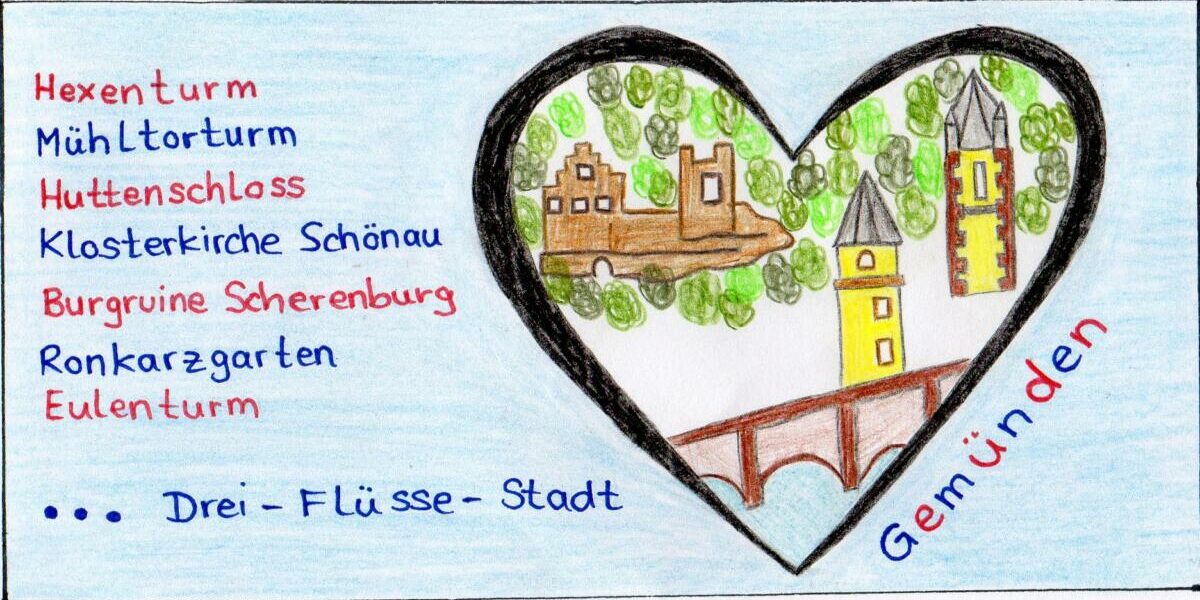 Hexenturm
Mühltorturm
Huttenschloss
Klosterkirche Schönau
Burgruine Scherenburg
Ronkarzgarten
Eulenturm
... Drei - Flüsse - Stadt
Gemünden